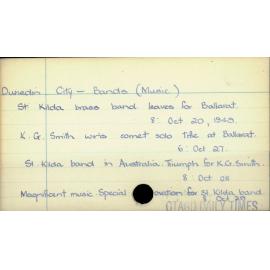 Dunedin City - Bands (Music)
St Kilda brass band leaves for Ballarat.
8: Oct 20, 1949.
K. G. Smith wins cornet solo title at Ballarat.
6: Oct 27.
St. Kilda band in Australia Triumph for K.G. Smith.
8: Oct 28
Magnificent music Special ovation for St. Kilda band.
8: Oct 29
OTAGO DAILY TIMES